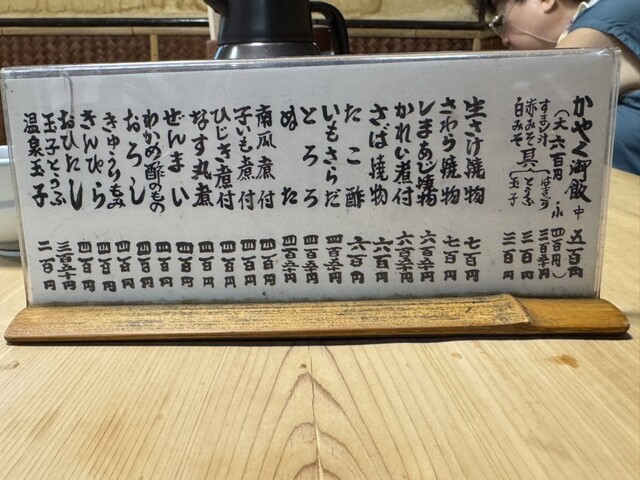 かやく御飯 中 五百円
（大 六百円 小 四百円）
すまし汁 三百五十円
赤みそ 三百円
白みそ 三百円
具 { はまぐり とうふ 玉子
生さけ焼物 七百円
さわら焼物 七百円
しまあじ焼物 六百五十円
かれい煮付 六百五十円
さば焼物 六百円
たこ酢 六百円
いもさらだ 四百五十円
とろろ 四百五十円
ぬた 四百五十円
南瓜煮付 四百円
子いも煮付 四百円
ひじき煮付 四百円
なす丸煮 四百円
ぜんまい 四百円
わかめ酢のもの 四百円
おろし 四百円
きゅうりもみ 四百円
きんぴら 四百円
おひたし 四百円
玉子とうふ 三百五十円
温泉玉子 二百円